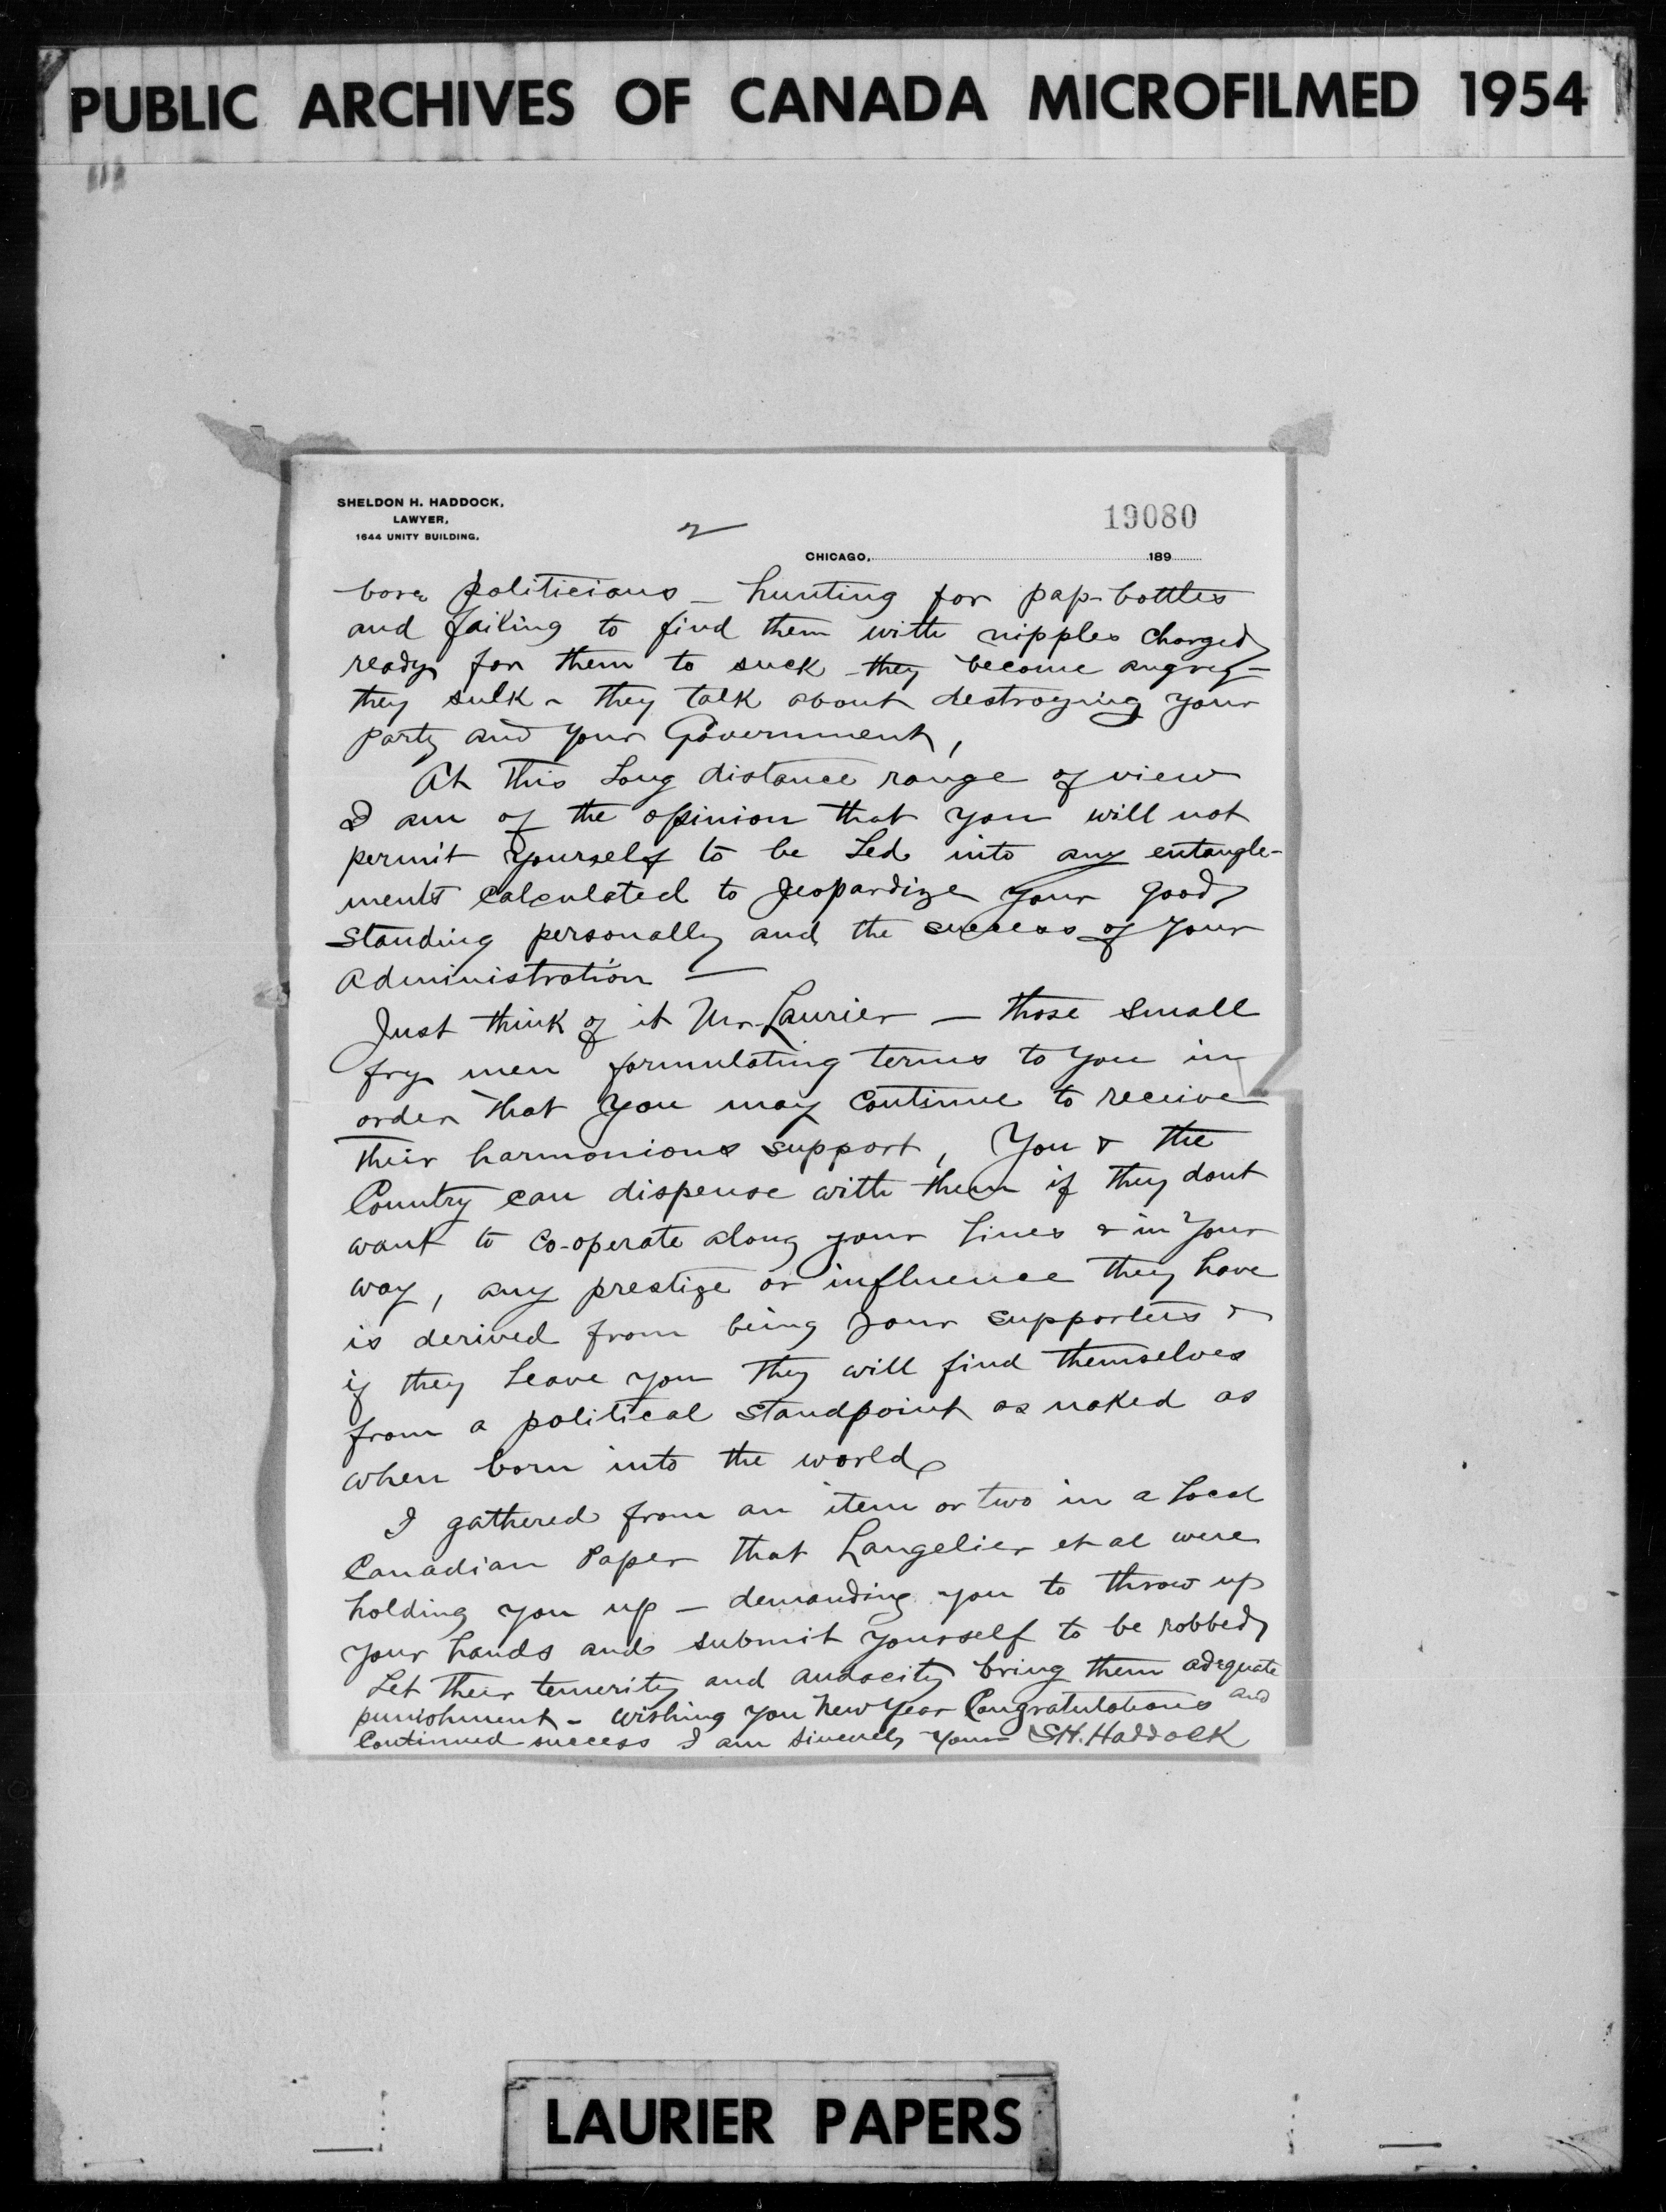 PUBLIC ARCHIVES OF CANADA MICROFILMED 1954
SHELDON H. HADDOCK,
LAWYER,
1644 UNITY BUILDING.
2
19080
CHICAGO, 189
bore politicians – hunting for pap-bottles
and failing to find them with nipples charged
ready for them to suck – they become angrey –
they sulk – they talk about destroying your
party and your Government,
At this Long distance range of view
I am of the opinion that you will not
permit yourself to be Led into any entangle-
ments Calculated to Jeopardize your good
Standing personally and the success of your
Administration —
Just think of it Mr. Laurier — those small
fry men formulating terms to you in
order that you may Continue to receive
their harmonious support, You & the
Country can dispense with them if they dont
want to Co-operate along your Lines & in your
way, any prestige or influence they have
is derived from being your supporters &
if they Leave you they will find themselves
from a political standpoint as naked as
when born into the world
I gathered from an item or two in a Local
Canadian Paper that Langelier et al were
holding you up – demanding you to throw up
your hands and submit yourself to be robbed,
Let their temerity and audacity bring them adequate
punishment – wishing you New Year Congratulations and
Continued success I am Sincerely yours S.H. Haddock
LAURIER PAPERS